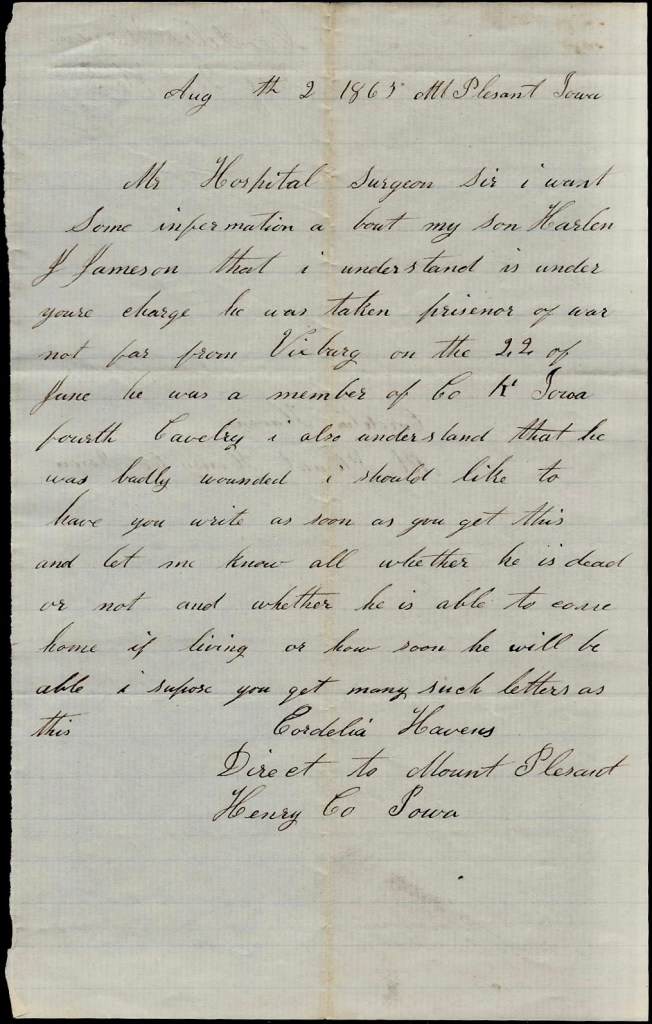 Aug th 2 1863 Mt Plesant Iowa
Mr Hospital surgeon sir i want
Some infermation a bout my son Harlen
J Jameson that i understand is under
youre charge he was taken prisenor of war
not far from Vixburg on the 22 of
June he was a member of Co K Iowa
fourth Cavelry i also understand that he
was badly wounded i should like to
have you write as soon as you get this
and let me know all whether he is dead
or not and whether he is able to come
home if living or how soon he will be
able i supose you get many such letters as
this Cordelia Havens
Direct to Mount Plesant
Henry Co Iowa